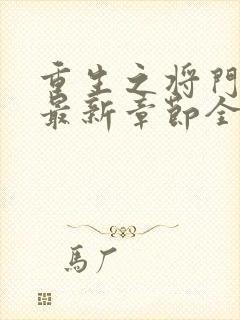 重生之将門
最新章節全
馬厂